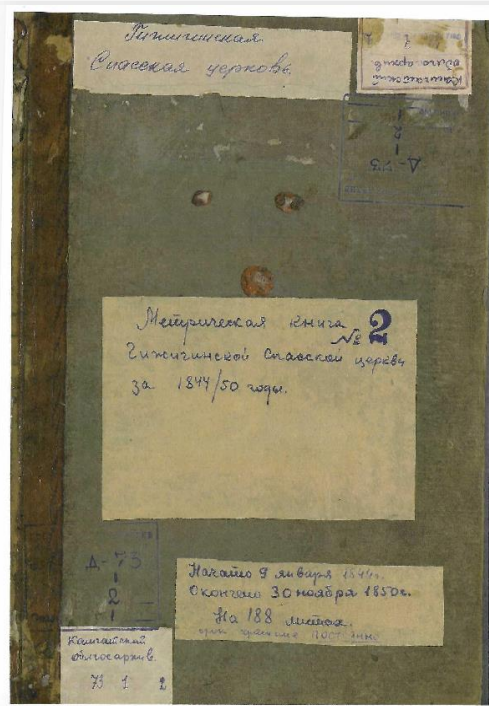 Гижигинская
Спасская церковь.
Камчатский
облгосархив
Д-73
-
2
-
Метрическая книга
№ 2
Гижигинской Спасской церкви
за 1844/50 годы.
Д-73
-
2
-
Начато 9 января 1844г.
Окончено 30 ноября 1850г.
На 188 листах.
срок хранения постоянно
Камчатский
облгосархив.
73 1 2